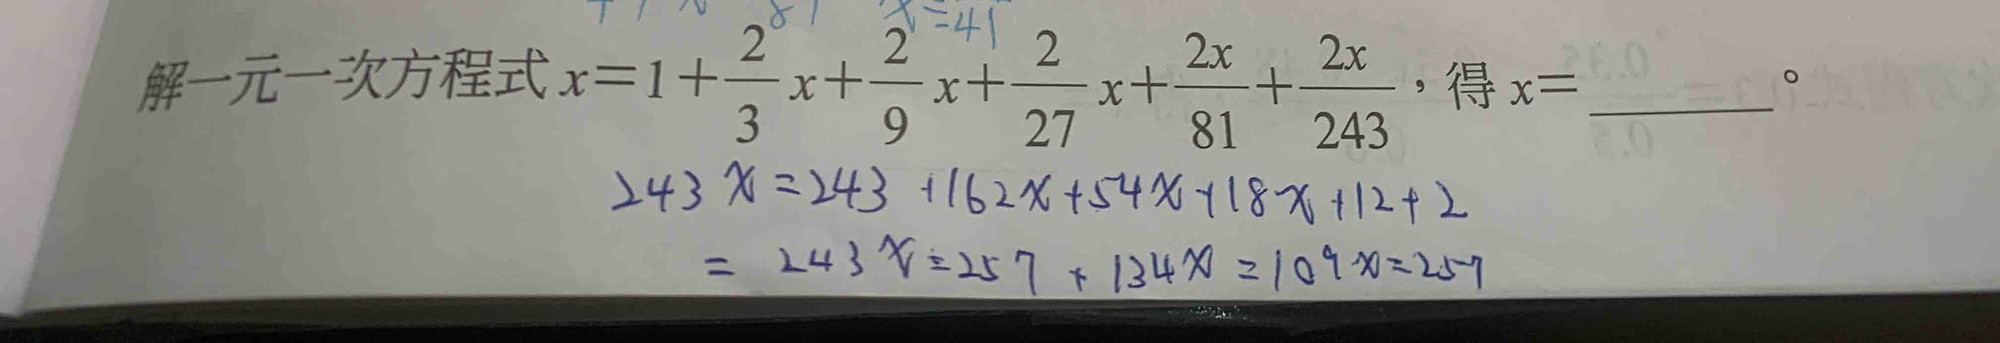 x=41
解一元一次方程式 x=1+\frac{2}{3}x+\frac{2}{9}x+\frac{2}{27}x+\frac{2x}{81}+\frac{2x}{243}，得 x=______。
243x=243+162x+54x+18x+12+2
= 243x=257+134x=109x=257